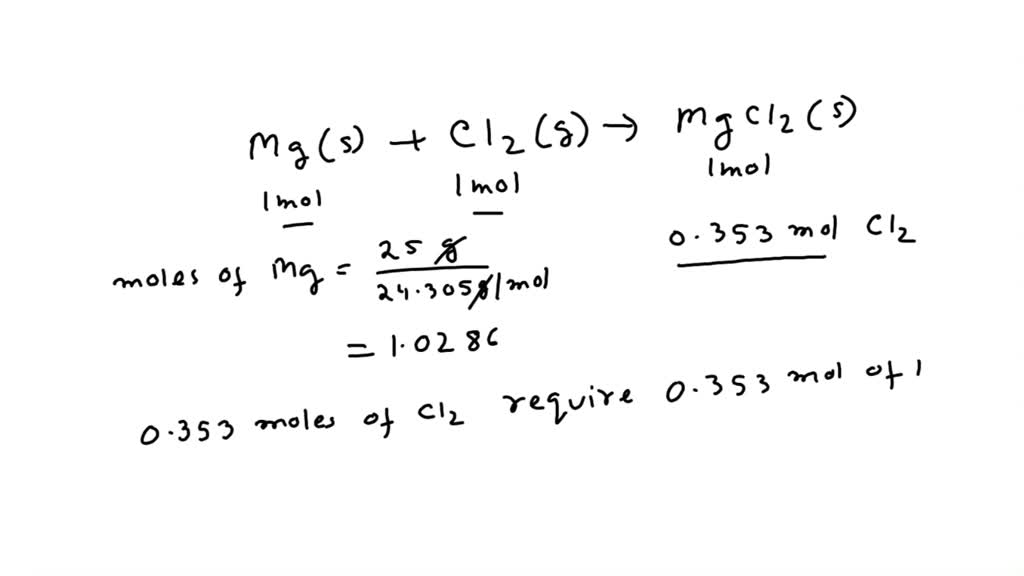 Mg(s) + Cl2(g) → MgCl2(s)
1mol 1mol 1mol
0.353 mol Cl2
moles of Mg = 25 g / 24.305g/mol
= 1.0286
0.353 moles of Cl2 require 0.353 mol of